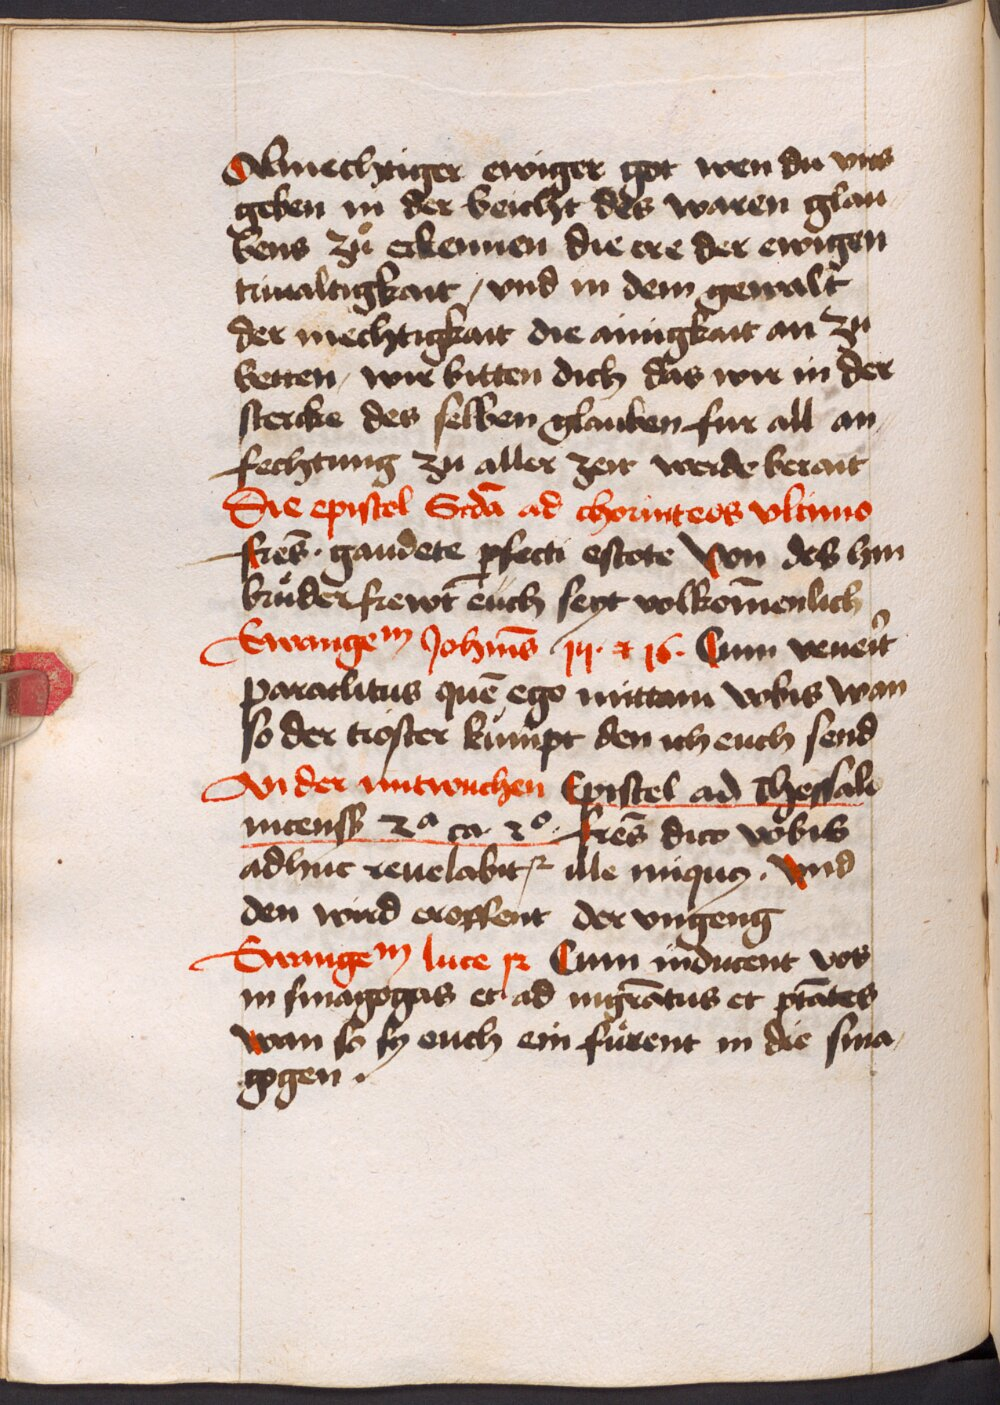 Almechtiger ewiger got wen du vns
geben in der beicht des waren glau
bens zů erkennen die ere der ewigen
triualtigkait / vnd in dem gewalt
der mechtigkait die ainigkait an zu
betten / wir bitten dich das wir in der
stercke des selben glauben fur all an
fechtung zu aller zeit werde berait
Die epistel Scdā ad chorinteos vltimo
frēs · gaudete pfecti estote Von des hin
brůder frewt euch seyt volkom̄enlich
Ewangem Johnīs 14 · et 16 · Cum venerit
paraclitus quē ego mittam vobis wan
so der tröster kumpt den ich euch send
An der mitwuchen Epistel ad Thessalo
nicenss 2a ca 2o · frēs dico vobis
adhuc reuelabitr ille iniquus · Vnd
den wird eroffent der vngeng
Ewangem luce 12 Cum inducent vos
in sinagogas et ad mgrātus et ptātes
wan so sy euch ein fůrent in die sina
gogen ·